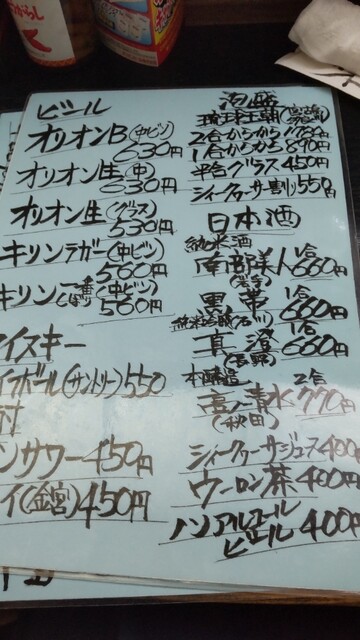 ビール
オリオンB(中ビン)
630円
オリオン生(中)
630円
オリオン生(グラス)
530円
キリンラガー(中ビン)
560円
キリン一番(中ビン)
560円
イスキー
イボール(サントリー)550
サワー450円
イ(金宮)450円
泡盛
琉球王朝
2合からから1780円
1合から 890円
グラス450円
シィークヮーサー割り550円
日本酒
純米酒 1合
南部美人660円
(岩手)
黒帯 1合 660円
純米吟醸
真澄 1合 660円
(長野)
本醸造 2合
高清水770円
(秋田)
シィークヮーサジュース400円
ウーロン茶400円
ノンアルコール
ビール 400円